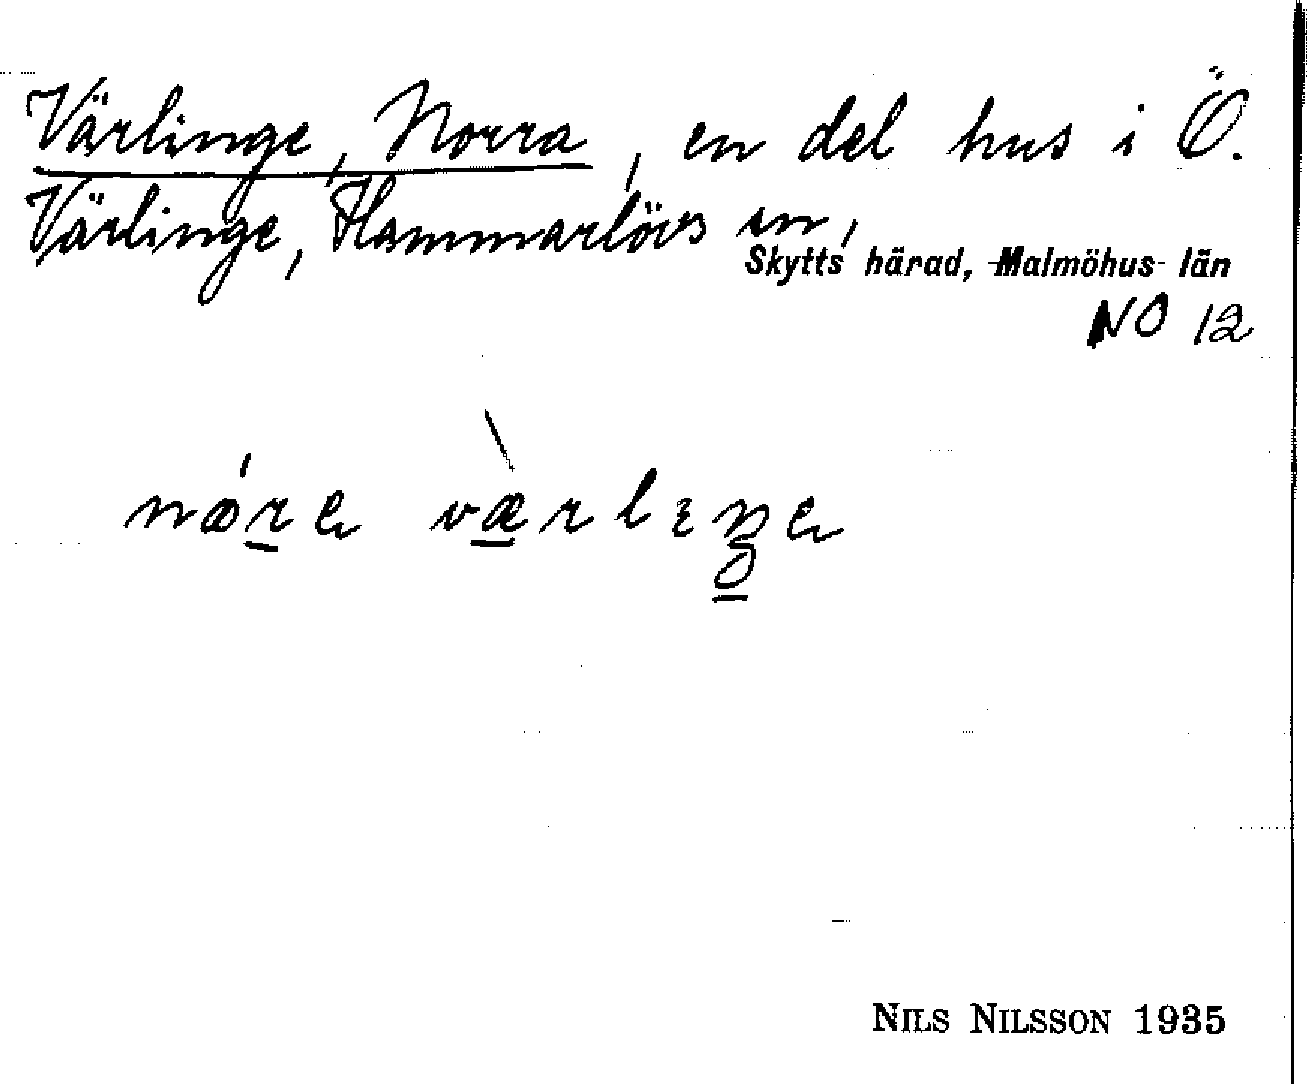 Värlinge, Norra, en del hus i Ö.
Värlinge, Hammarlövs sn,
Skytts härad, Malmöhus län
NO 12
NILS NILSSON 1935